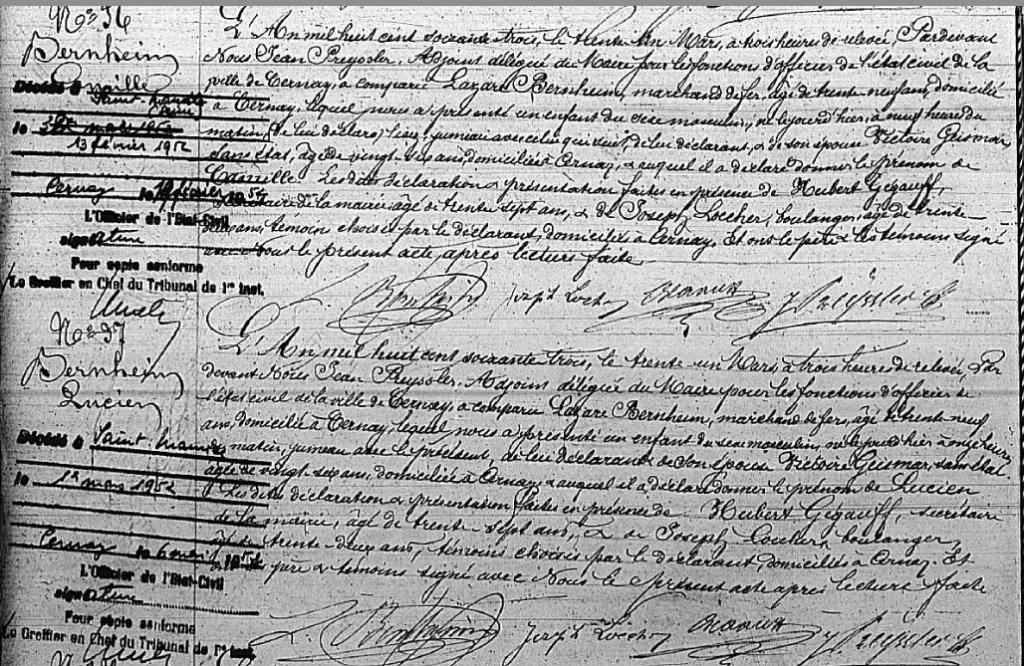 No 36
Bernheim
Camille
Décédé à
Saint-Mandé
(Seine)
le
13 février 1952
Cernay le 1952
L'Officier de l'Etat-Civil
signature
Pour copie conforme
Le Greffier en Chef du Tribunal de 1re Inst.
L'An mil huit cent soixante trois, le trente un Mars, à trois heures de relevée, Pardevant
Nous Jean Preyssler, Adjoint délégué du Maire pour les fonctions d'officier de l'état civil de la
ville de Cernay, a comparu Lazare Bernheim, marchand de fer, âgé de trente neuf ans, domicilié
à Cernay, lequel nous a présenté un enfant du sexe masculin, né le jour d'hier, à neuf heures du
matin, jumeau avec celui qui suit, de lui déclarant, & de son épouse Victoire Geismar,
sans état, âgée de vingt-six ans, domiciliée à Cernay, & auquel il a déclaré donner le prénom de
Camille. Les dites déclaration & présentation faites en présence de Hubert Gégauff,
secrétaire de la mairie âgé de trente sept ans, & de Joseph Locher, boulanger, âgé de trente-
deux ans, témoins choisis par le déclarant, domiciliés à Cernay, Et ont le père & les témoins signé
avec Nous le présent acte, après lecture faite.
L. Bernheim Joseph Locher J. Preyssler
No 37
Bernheim
Lucien
Décédé à Saint-Mandé
le 1er mars 1952
Cernay le 6 1952
L'Officier de l'Etat-Civil
signature
Pour copie conforme
Le Greffier en Chef du Tribunal de 1re Inst.
L'An mil huit cent soixante trois, le trente-un Mars, à trois heures de relevée, Par
devant Nous Jean Preyssler, Adjoint délégué du Maire pour les fonctions d'officier de
l'état civil de la ville de Cernay, a comparu Lazare Bernheim, marchand de fer, âgé de trente neuf
ans, domicilié à Cernay, lequel nous a présenté un enfant du sexe masculin, né le jour d'hier à onze heures
du matin, jumeau avec le précédent, de lui déclarant & de son épouse Victoire Geismar, sans état
âgée de vingt-six ans, domiciliée à Cernay, & auquel il a déclaré donner le prénom de Lucien
Les dites déclaration & présentation faites en présence de Hubert Gégauff, secrétaire
de la mairie, âgé de trente-sept ans, & de Joseph Locher, boulanger,
âgé de trente-deux ans, témoins choisis par le déclarant, domiciliés à Cernay. Et
ont le père & témoins signé avec Nous le présent acte après lecture faite
L. Bernheim Joseph Locher J. Preyssler